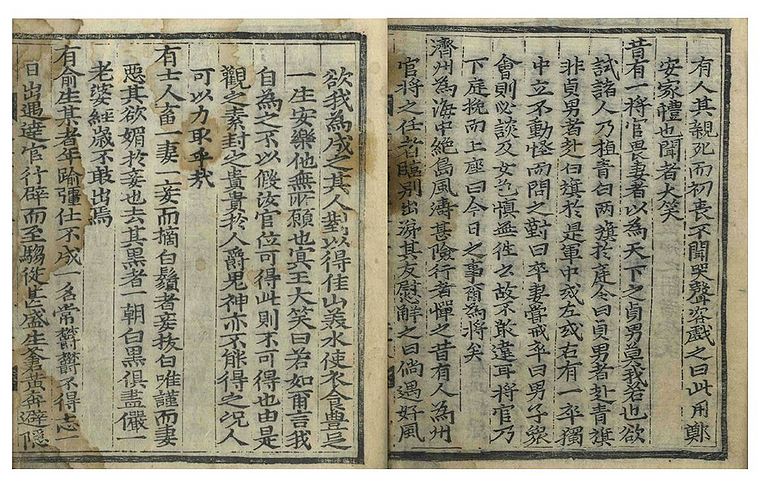 有人其親死而初喪不聞哭聲客戲之曰此用鄭
家禮也聞者大笑
昔有一將官畏妻者以為天下之貞男莫我若也欲
試諸人乃植青白兩旗於庭令曰貞男者赴青旗
非貞男者赴白旗於是軍中或左或右有一卒獨
中立不動怪而問之對曰卒妻嘗戒卒曰男子衆
會則必談及女色慎無徃之故不敢違耳將官乃
下庭挽而上座曰今日之事爾為將矣
濟州為海中絶島風濤甚險行者憚之昔有人為州
官將之任者臨別出涕其友慰解之曰倘遇好風
欲我為成之其人對以得佳山美水使衣食豊足
一生安樂他無所願也冥王大笑曰若如爾言我
自為之不以假汝官位可得此則不可得也由是
觀之素封之貴貴於人爵鬼神亦不能得之况人
可以力取乎哉
有士人畜一妻一妾而摘白鬚者妾拔白唯謹而妻
惡其欲媚於妾也去其黒者一朝白黒俱盡儼一
老婆經歲不敢出焉
有俞生其者年踰彊仕不成一名常欝欝不得志一
日出遇達官行辟而至騶從甚盛生蒼黃奔避隠